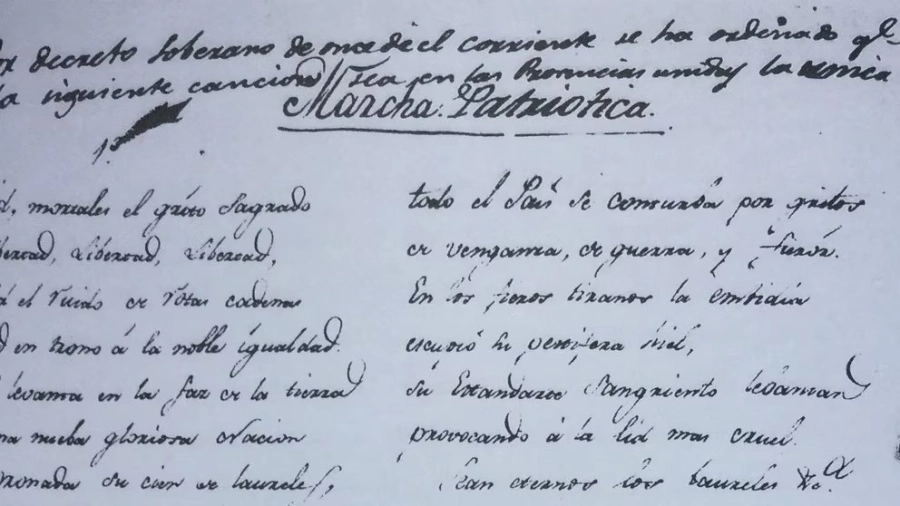 decreto soberano de onze del corriente se ha ordenado qᵉ
la siguiente cancion sea en las Provincias unidas la unica
Marcha Patriotica.
1ª
mortales el grito Sagrado
Libertad, Libertad,
el ruido de rotas cadenas
en trono á la noble igualdad.
levanta en la faz de la tierra
nueba gloriosa Nacion
su cien de laureles,
todo el País se conturba por gritos
de venganza, de guerra, y furór.
En los fieros tiranos la embidia
escupió su pestifera hiel,
su Estandarte Sangriento lebantan
provocando á la lid mas cruel.
Sean eternos los laureles &ª